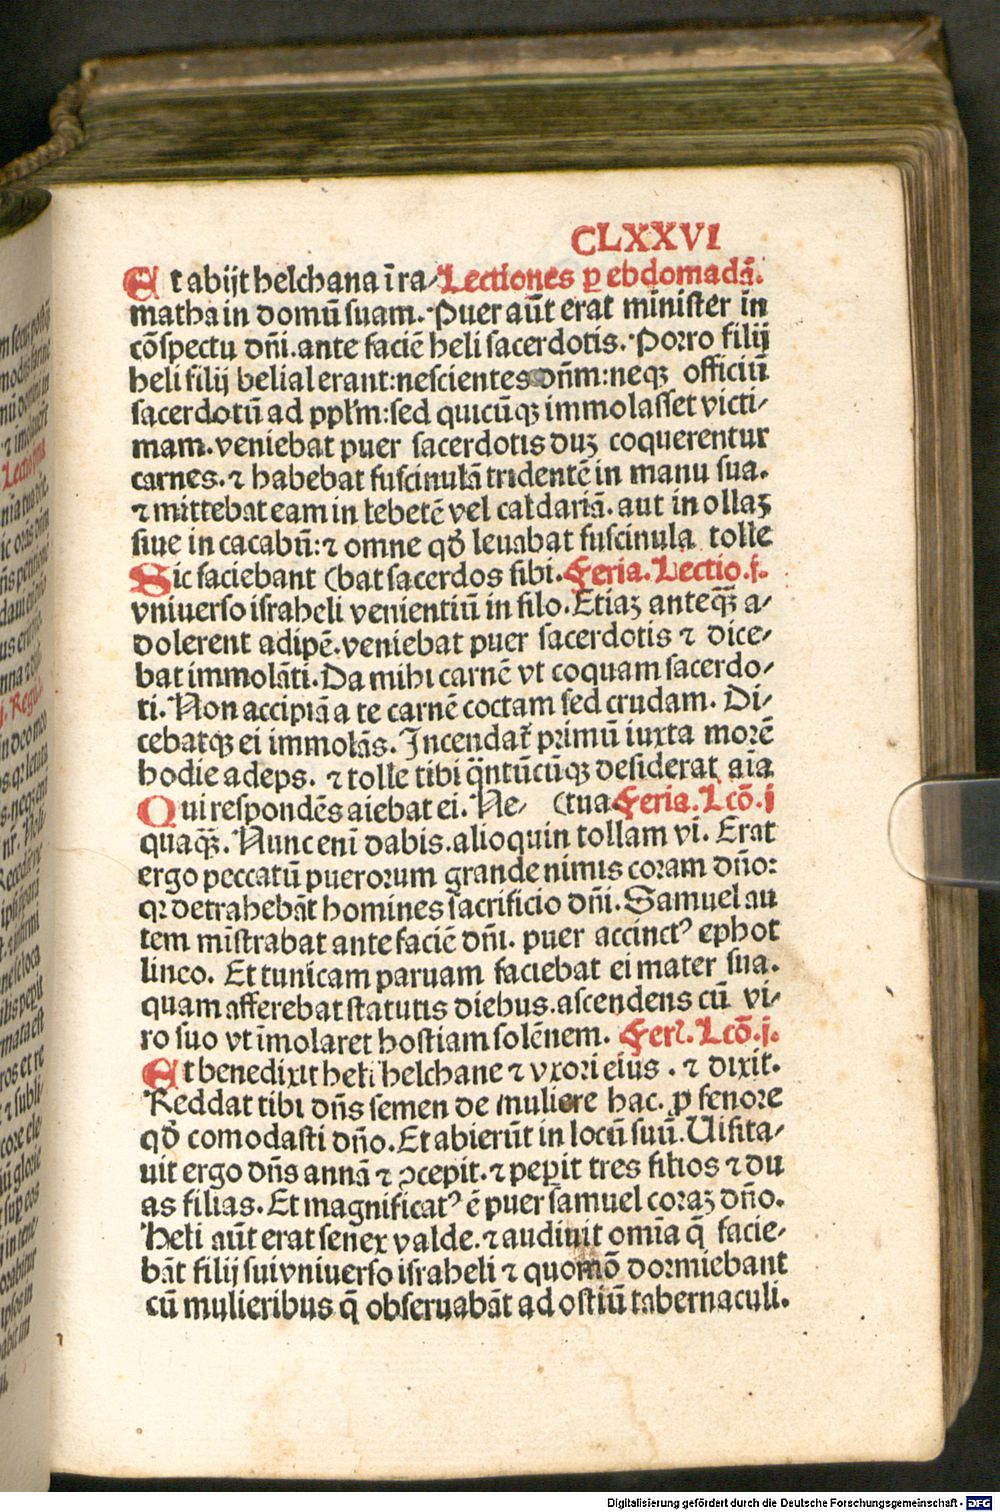 CLXXVI
Et abijt helchana ī ra⸗ Lectiones ꝑ ebdomadā.
matha in domū suam. Puer aūt erat minister in
cōspectu dn̄i. ante faciē heli sacerdotis. Porro filij
heli filij belial erant: nescientes dn̄m: neqꝫ officiū
sacerdotū ad ppl'm: sed quicūqꝫ immolasset victi⸗
mam. veniebat puer sacerdotis duꝫ coquerentur
carnes. ⁊ habebat fuscinulā tridentē in manu sua.
⁊ mittebat eam in lebetē vel caldariā. aut in ollaꝫ
siue in cacabū: ⁊ omne qđ leuabat fuscinula tolle
Sic faciebant (bat sacerdos sibi. Feria. Lectio. j.
vniuerso israheli venientiū in silo. Etiaꝫ anteqꝫ̄ a⸗
dolerent adipē. veniebat puer sacerdotis ⁊ dice⸗
bat immolāti. Da mihi carnē vt coquam sacerdo⸗
ti. Non accipiā a te carnē coctam sed crudam. Di⸗
cebatqꝫ ei immolās. Incendat̄ primū iuxta morē
hodie adeps. ⁊ tolle tibi q̄ntūcūqꝫ desiderat aīa
Qui respondēs aiebat ei. Ne⸗ (tua Feria. Lcō. j
quaqꝫ̄. Nunc enī dabis. alioquin tollam vi. Erat
ergo peccatū puerorum grande nimis coram dn̄o:
qꝛ detrahebāt homines sacrificio dn̄i. Samuel au
tem mīstrabat ante faciē dn̄i. puer accinctꝰ ephot
lineo. Et tunicam paruam faciebat ei mater sua.
quam afferebat statutis diebus. ascendens cū vi⸗
ro suo vt īmolaret hostiam solēnem. Ferī. Lcō. j.
Et benedixit heli helchane ⁊ vxori eius. ⁊ dixit.
Reddat tibi dn̄s semen de muliere hac. ꝓ fenore
qđ comodasti dn̄o. Et abierūt in locū suū. Uisita⸗
uit ergo dn̄s annā ⁊ ꝯcepit. ⁊ peꝑit tres filios ⁊ du
as filias. Et magnificatꝰ ē puer samuel coraꝫ dn̄o.
Heli aūt erat senex valde. ⁊ audiuit om̄ia q̄ facie⸗
bāt filij sui vniuerso israheli ⁊ quomō dormiebant
cū mulieribus q̄ obseruabāt ad ostiū tabernaculi.
Digitalisierung gefördert durch die Deutsche Forschungsgemeinschaft - DFG